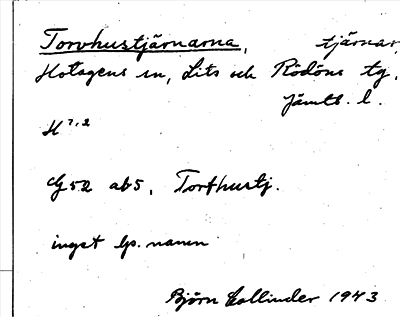 Torvhustjärnarna, tjärnar,
Hotagens sn, Lits och Rödöns tg,
Jämtl. l.
H 7,2
G 52 ab5, Torfhustj.
inget lp. namn
Björn Collinder 1943